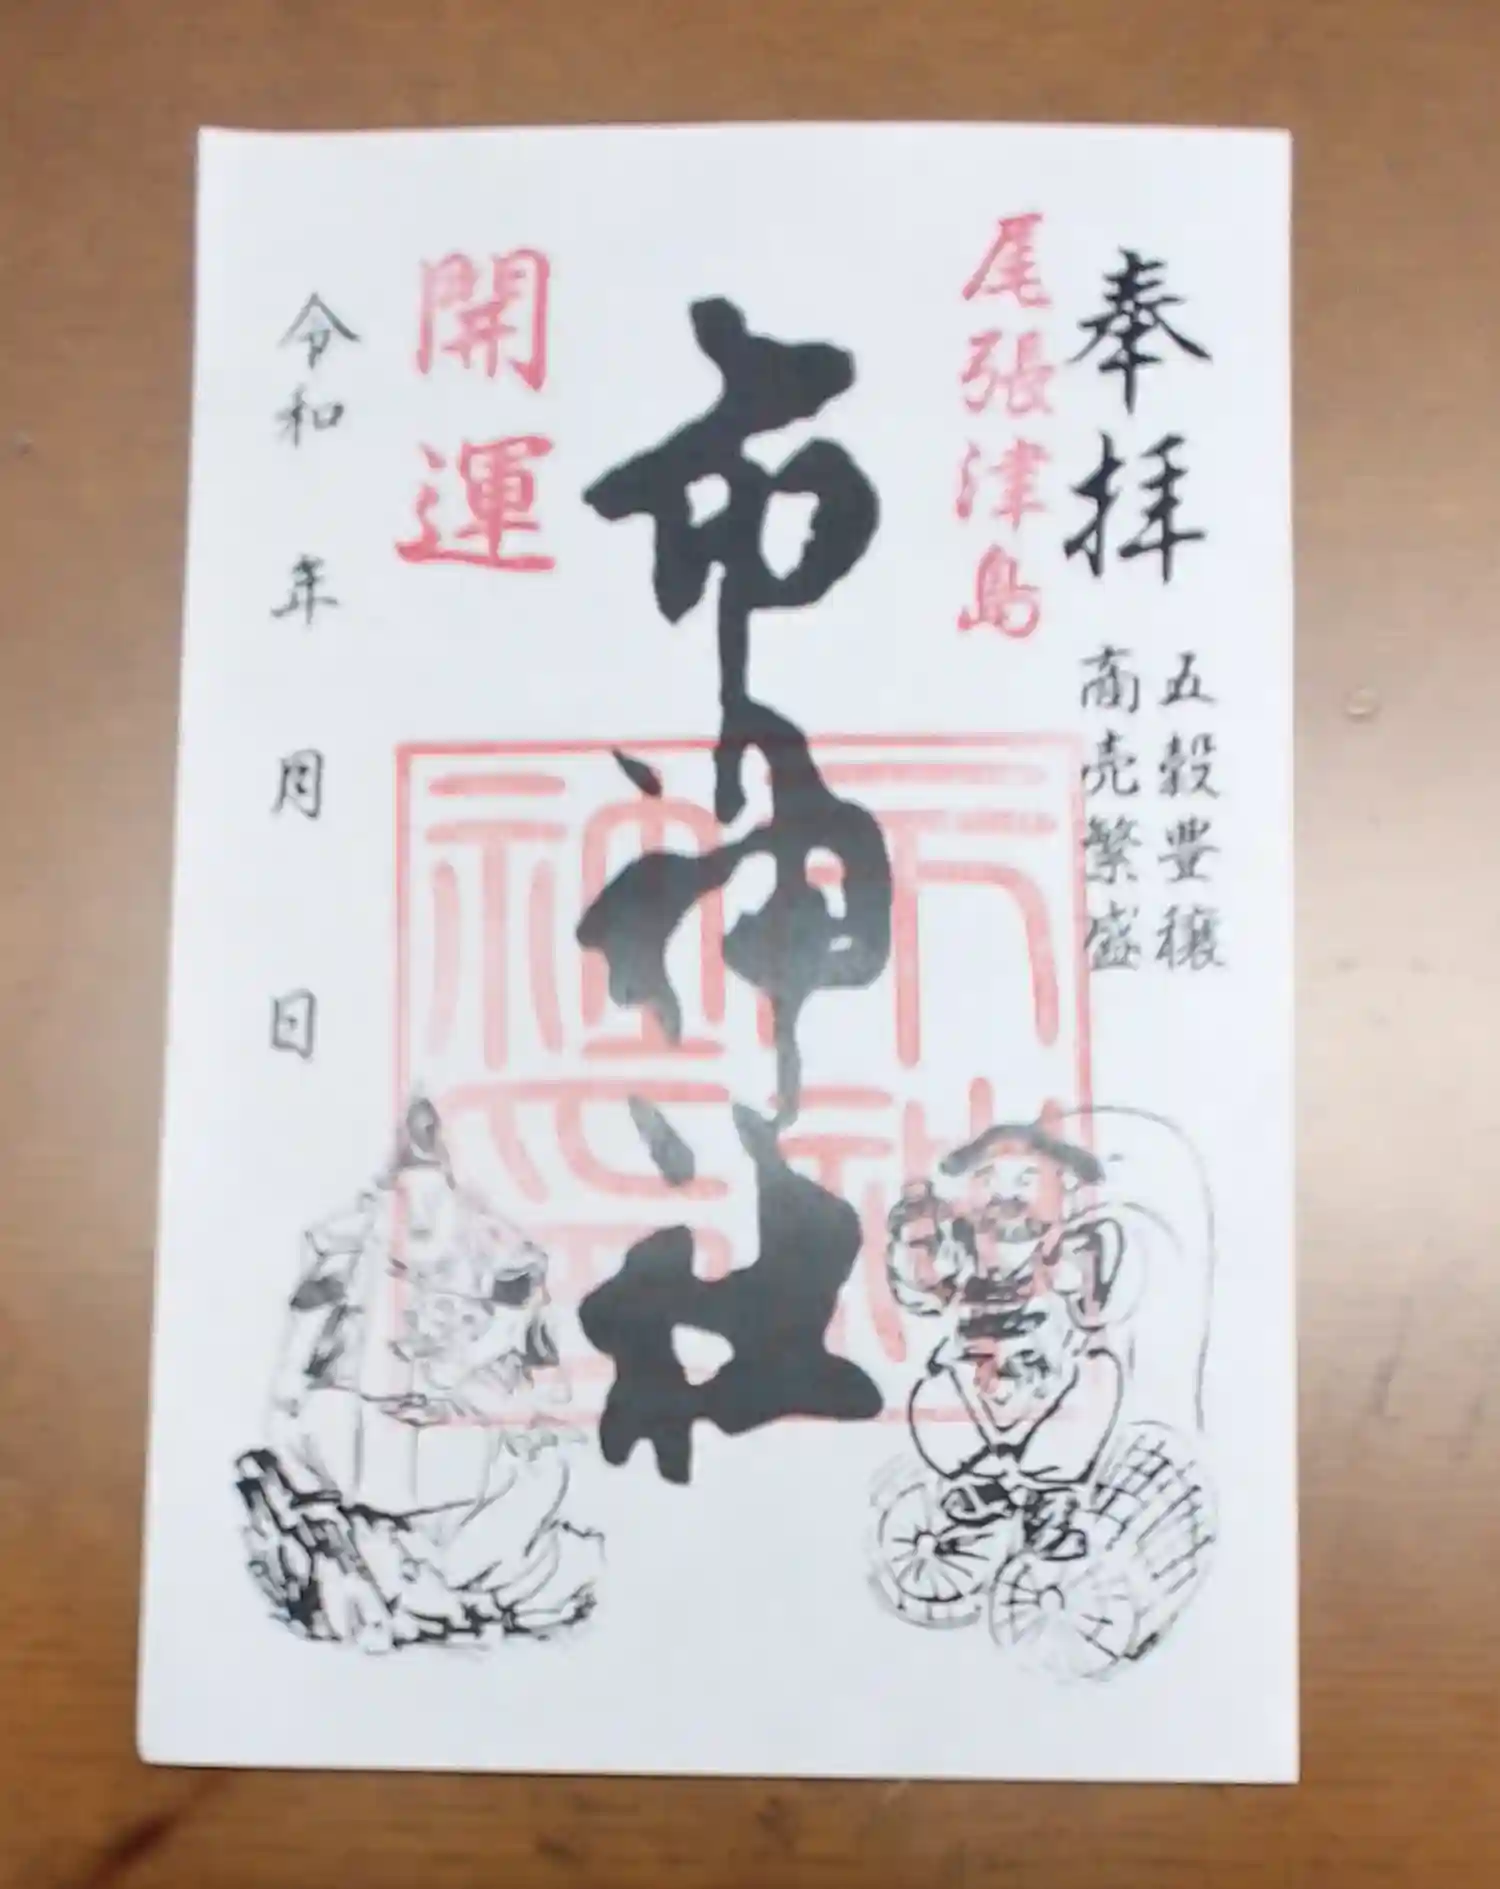 奉拝
五穀豊穣
商売繁盛
尾張津島
市神社
市神社印
開運
令和 年 月 日